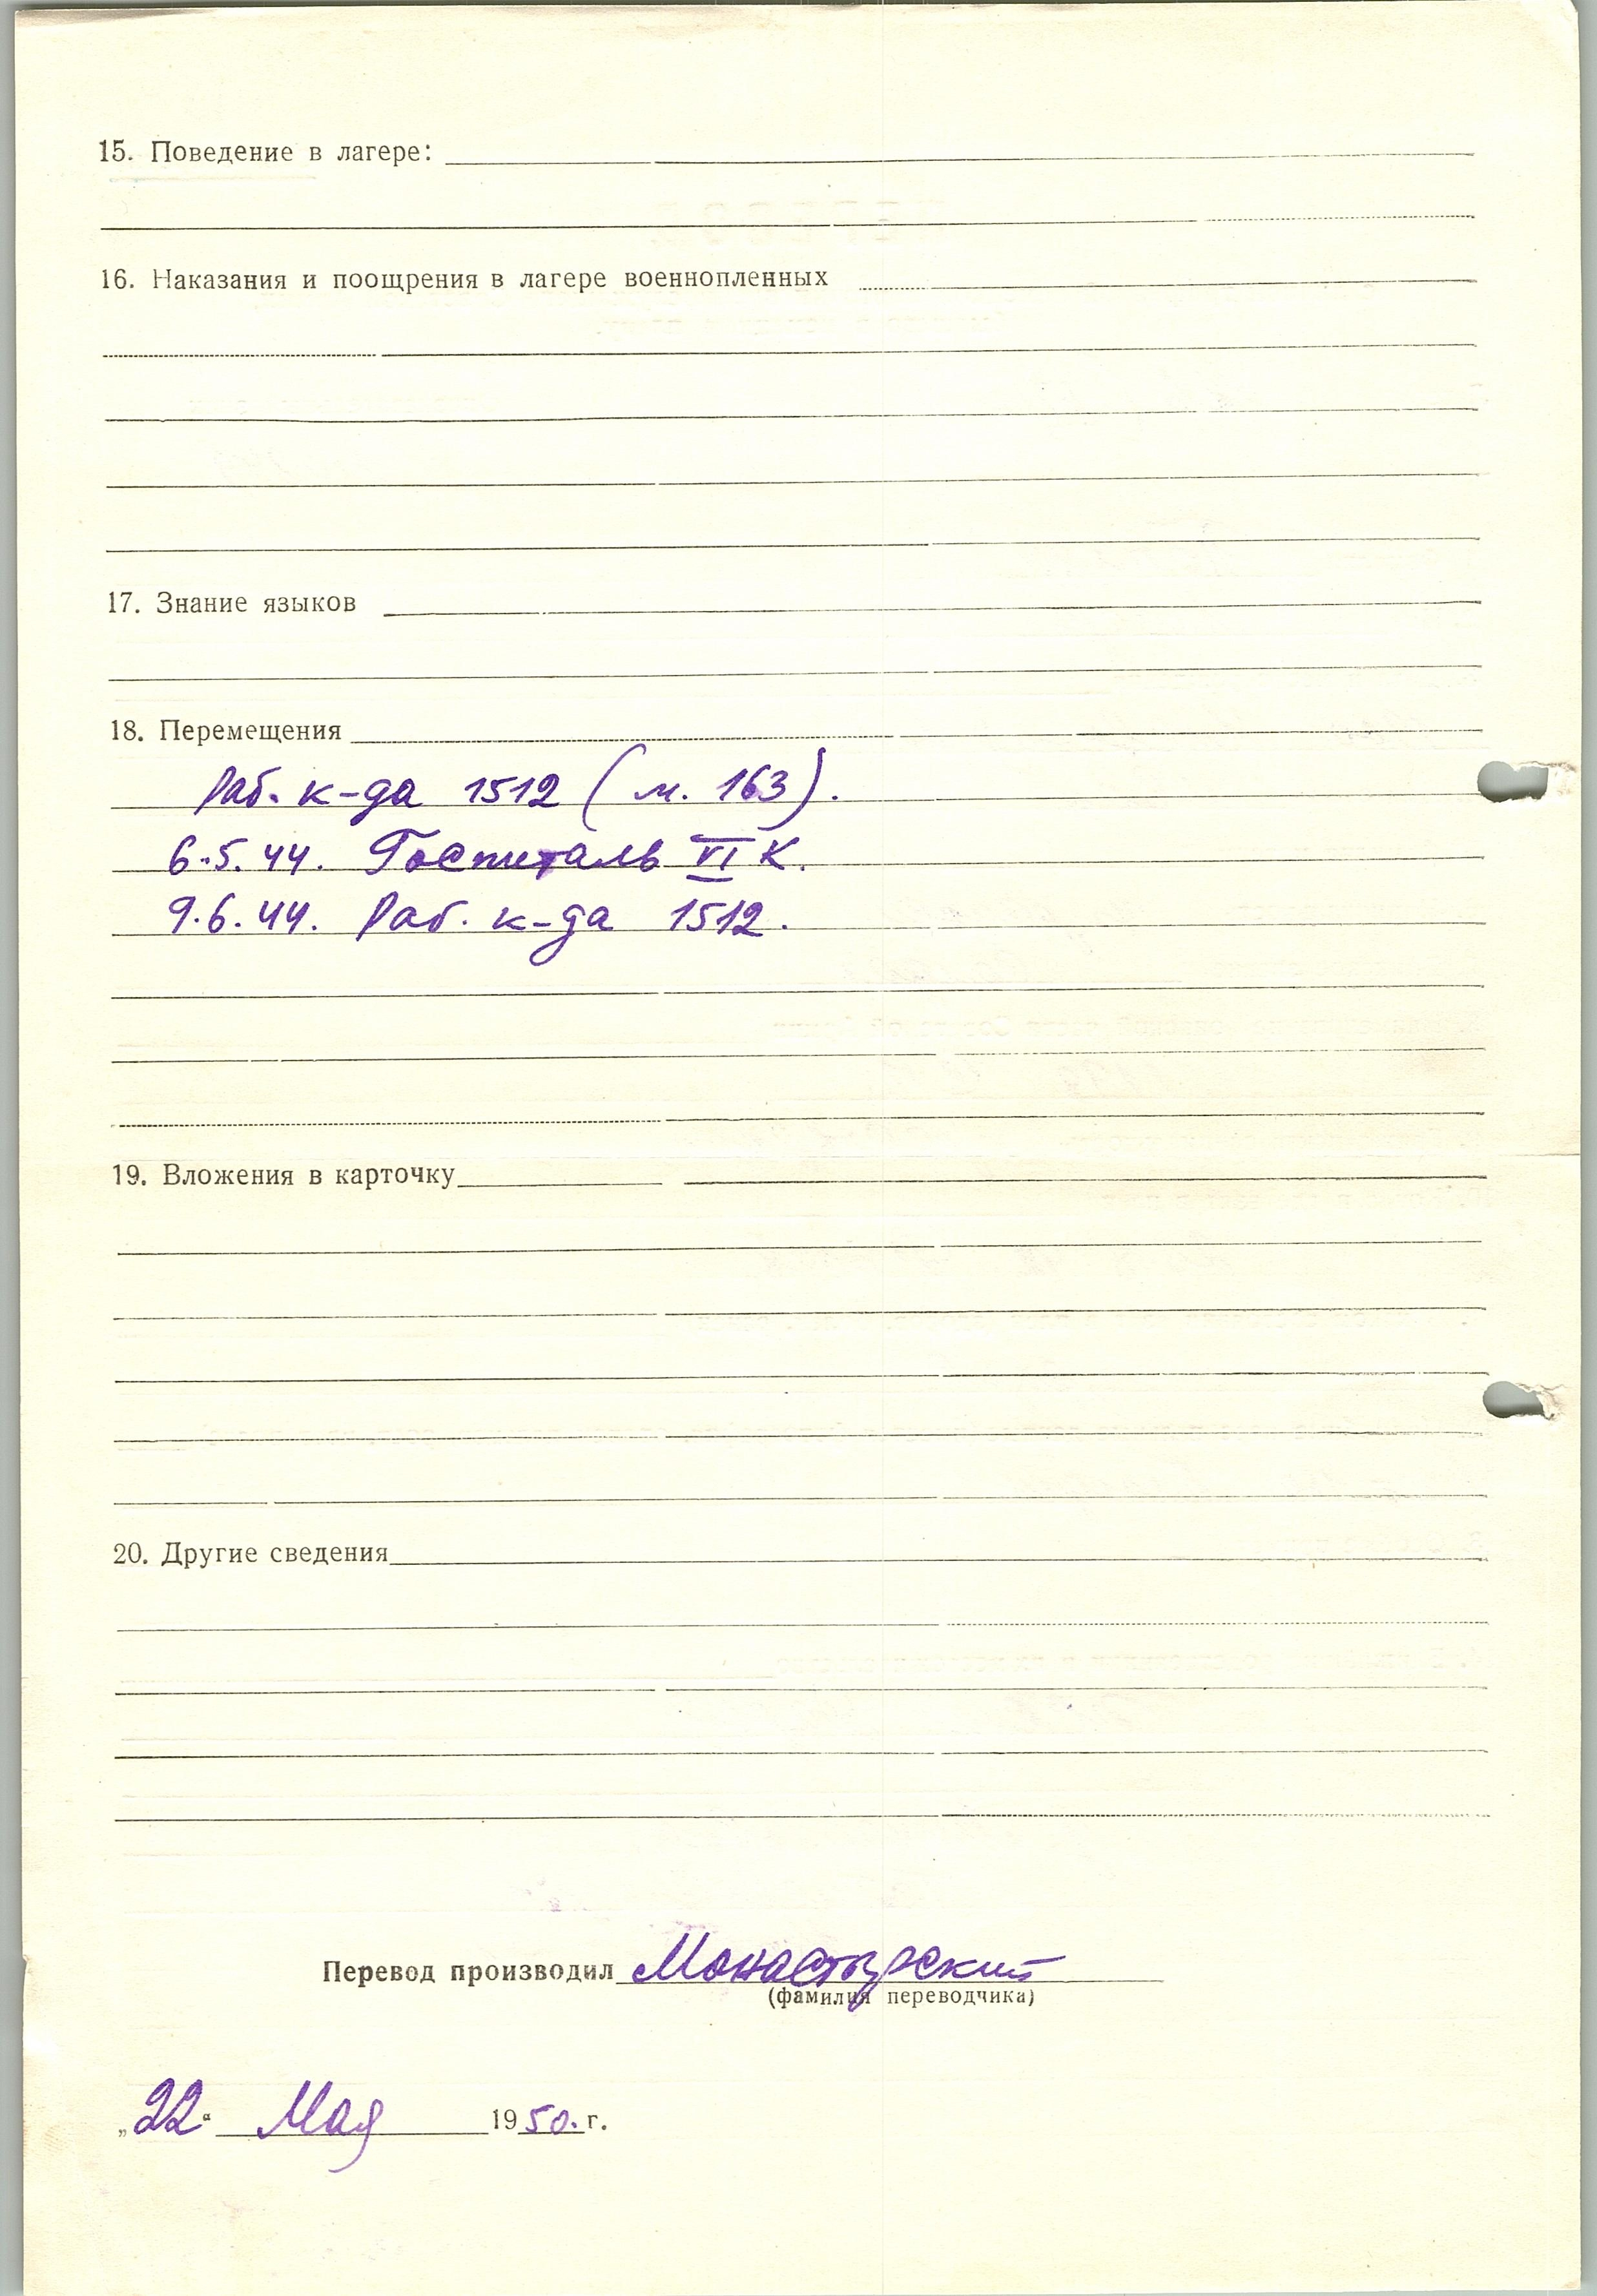 15. Поведение в лагере:
16. Наказания и поощрения в лагере военнопленных
17. Знание языков
18. Перемещения
Раб. к-да 1512 (м. 163).
6.5.44. Госпиталь VI К.
9.6.44. Раб. к-да 1512.
19. Вложения в карточку
20. Другие сведения
Перевод производил Монастырский
(фамилия переводчика)
„22“ Мая 1950. г.